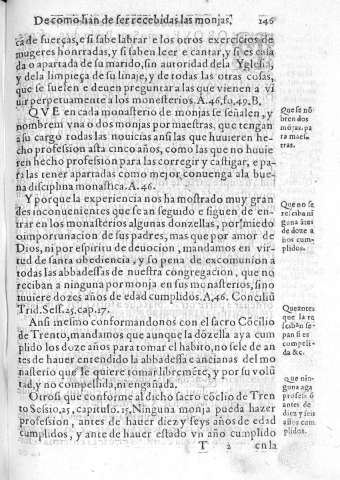 De como han de ser recebidas las monjas. 246
ca de fuerças, e si sabe labrar e los otros exercicios de
mugeres honrradas, y si saben leer e cantar, y si es casa
da o apartada de su marido, sin autoridad dela Yglesia,
y dela limpieça de su linaje, y de todas las otras cosas,
que se suelen e deuen preguntar a las que vienen a vi
uir perpetuamente a los monesterios. A.46. fo.49.B.
QVE en cada monasterio de monjas se señalen, y
nombren vna o dos monjas por maestras, que tengan
a su cargo todas las nouicias ansi las que huuieren he-
cho profession asta cinco años, como las que no huuie
ren hecho profession para las corregir y castigar, e pa-
ra las tener apartadas como mejor conuenga ala bue-
na disciplina monastica. A.46.
Y porque la experiencia nos ha mostrado muy gran
des inconuenientes que se an seguido e siguen de en-
trar en los monesterios algunas donzellas, por miedo
o importunacion de sus padres, mas que por amor de
Dios, ni por espiritu de deuocion, mandamos en vir-
tud de santa obediencia, y so pena de excomunion a
todas las abbadessas de nuestra congregacion, que no
reciban a ninguna por monja en sus monesterios, sino
tuuiere dozes años de edad cumplidos. A.46. Conciliũ
Trid. Sess.25. cap.17.
Ansi mesmo conformandonos con el sacro Cõcilio
de Trento, mandamos que aunque la dõzella aya cum
plido los doze años para tomar el habito, no sele de an
tes de hauer entendido la abbadessa e ancianas del mo
nasterio que le quiere tomar libremẽte, y por su volũ
tad, y no compelida, ni engañada.
Otrosi que conforme al dicho sacro cõcilio de Tren
to Sessio, 25, capitulo. 15, Ninguna monja pueda hazer
profession, antes de hauer diez y seys años de edad
cumplidos, y ante de hauer estado vn año cumplido
T 2 en la
Que se nõ
bren dos
mõjas pa
ra maes-
tras.
Que no se
reciba ni
guna ãtes
de doze a
ños cum-
plidos.
Que antes
que la re
sciban se
pan si es
cumpli-
da &c.
Que nin-
guna aga
profesiõ
antes de
diez y seis
años cum
plidos.